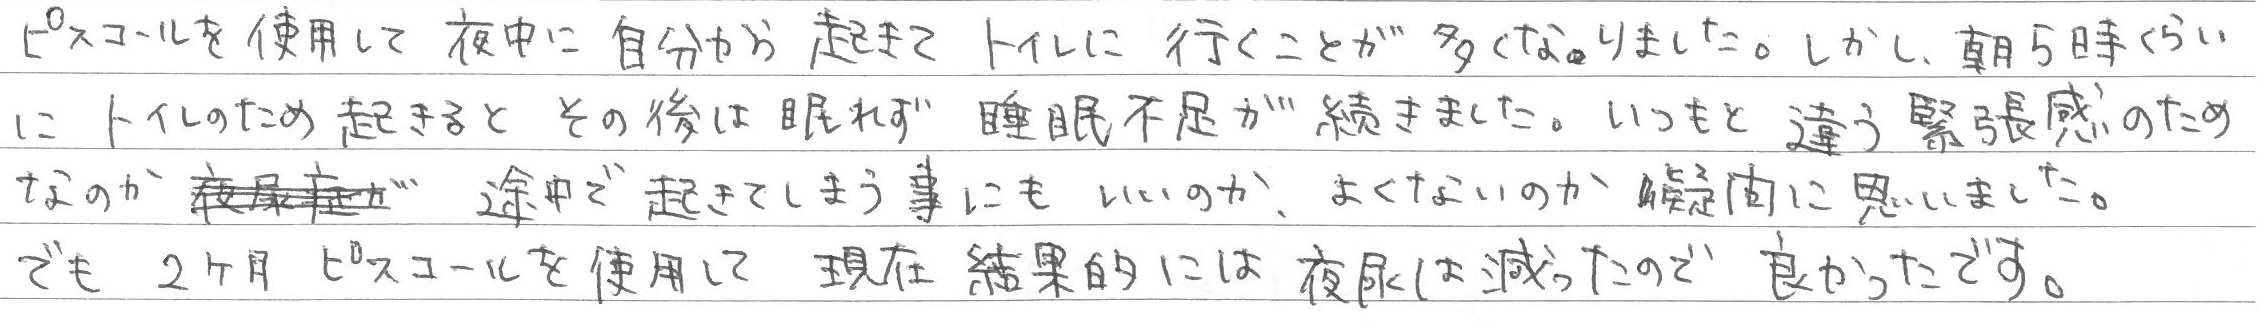 ピスコールを使用して 夜中に 自分から 起きて トイレに 行くことが 多くなりました。しかし、朝5時くらい
に トイレのため 起きると その後は 眠れず 睡眠不足が 続きました。いつもと 違う 緊張感のため
なのか 夜尿症が 途中で 起きてしまう事にも いいのか、よくないのか 疑問に 思いました。
でも 2ヶ月 ピスコールを使用して 現在 結果的には 夜尿は減ったので 良かったです。